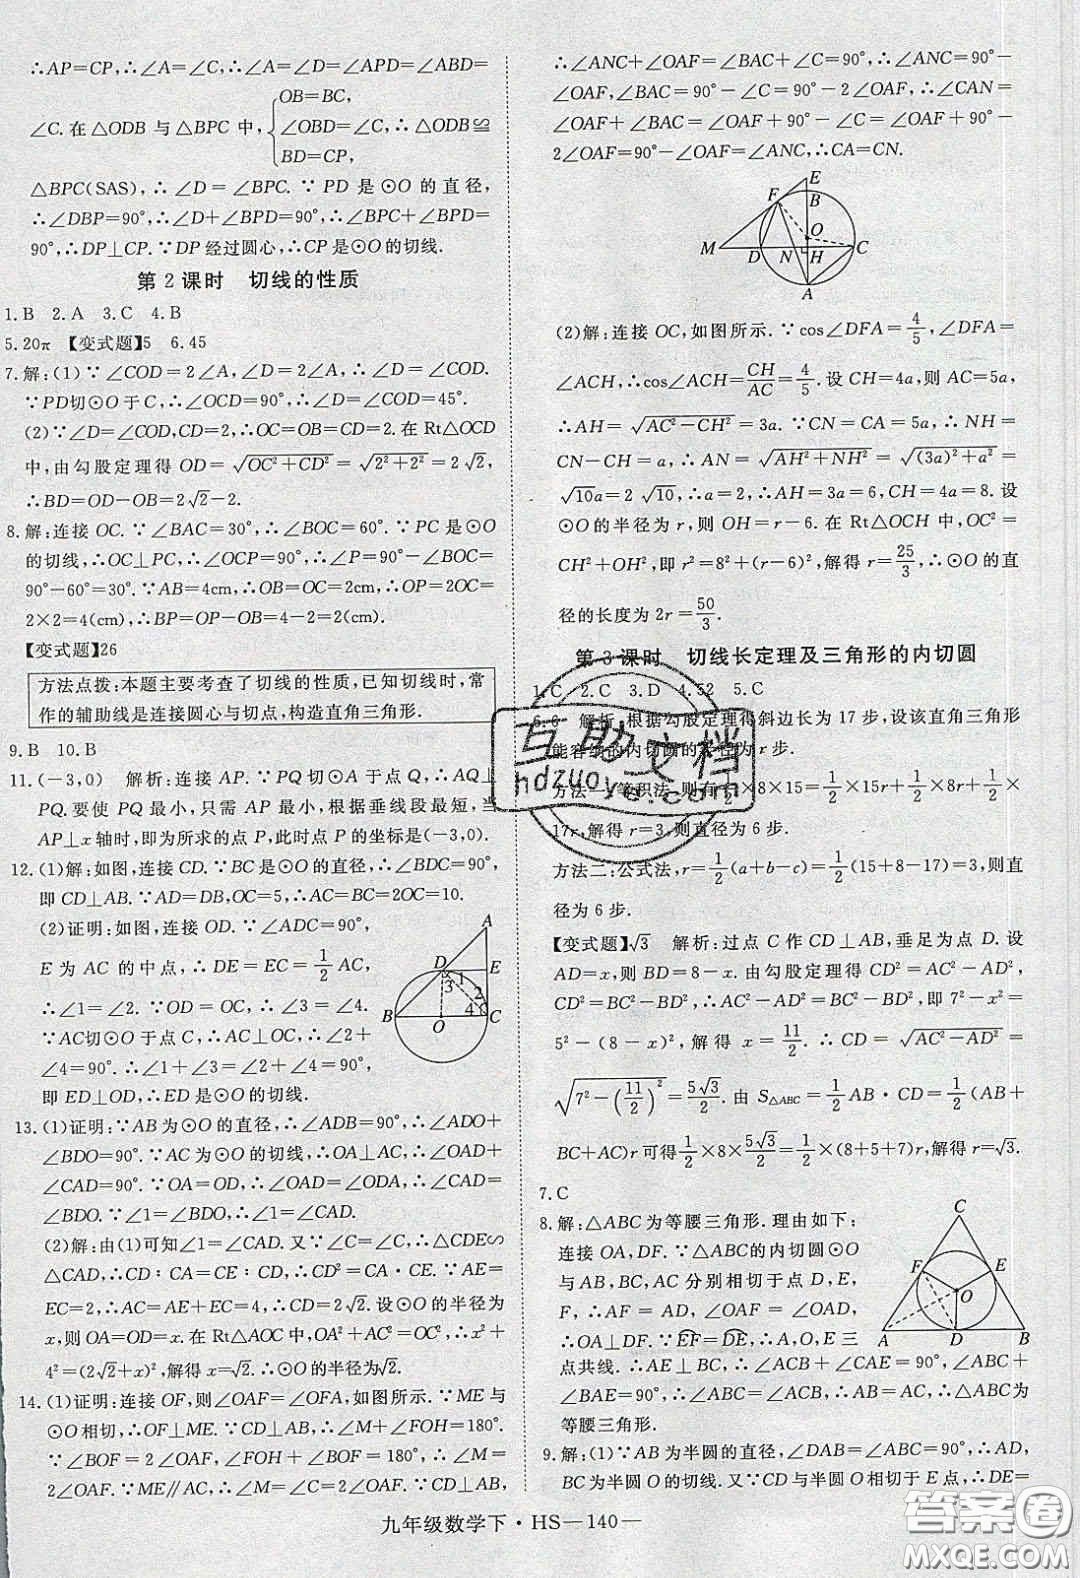 ∴AP=CP,∴∠A=∠C,∴∠A=∠D=∠APD=∠ABD=
∠C.在△ODB 与△BPC 中,{OB=BC,
∠OBD=∠C,∴△ODB≌
BD=CP,
△BPC(SAS),∴∠D=∠BPC.∵PD 是⊙O 的直径,
∴∠DBP=90°,∴∠D+∠BPD=90°,∴∠BPC+∠BPD=
90°,∴DP⊥CP.∵DP 经过圆心,∴CP 是⊙O 的切线.
第 2 课时 切线的性质
1.B 2.A 3.C 4.B
5.20π 【变式题】5 6.45
7.解:(1)∵∠COD=2∠A,∠D=2∠A,∴∠D=∠COD.
∵PD切⊙O 于 C,∴∠OCD=90°,∴∠D=∠COD=45°.
(2)∵∠D=∠COD,CD=2,∴OC=OB=CD=2.在 Rt△OCD
中,由勾股定理得 OD=√(OC²+CD²)=√(2²+2²)=2√2,
∴BD=OD-OB=2√2-2.
8.解:连接 OC.∵∠BAC=30°,∴∠BOC=60°.∵PC 是⊙O
的切线,∴OC⊥PC,∴∠OCP=90°,∴∠P=90°-∠BOC=
90°-60°=30°.∵AB=4cm,∴OB=OC=2cm,∴OP=2OC=
2×2=4(cm),∴BP=OP-OB=4-2=2(cm).
【变式题】26
方法点拨:本题主要考查了切线的性质,已知切线时,常
作的辅助线是连接圆心与切点,构造直角三角形.
9.B 10.B
11.(-3,0) 解析:连接 AP.∵PQ 切⊙A 于点 Q,∴AQ⊥
PQ.要使 PQ 最小,只需 AP 最小,根据垂线段最短,当
AP⊥x 轴时,即为所求的点 P,此时点 P 的坐标是(-3,0).
12.(1)解:如图,连接 CD.∵BC 是⊙O 的直径,∴∠BDC=90°,
即 CD⊥AB.∵AD=DB,OC=5,∴AC=BC=2OC=10.
(2)证明:如图,连接 OD.∵∠ADC=90°,
E 为 AC 的中点,∴DE=EC=1/2 AC,
∴∠1=∠2.∵OD=OC,∴∠3=∠4.
∵AC切⊙O 于点 C,∴AC⊥OC,∴∠2+
∠4=90°,∴∠1+∠3=∠2+∠4=90°,
即 ED⊥OD,∴ED 是⊙O 的切线.
A
D
E
1
3
2
4
B
O
C
13.(1)证明:∵AB为⊙O 的直径,∴∠ADB=90°,∴∠ADO+
∠BDO=90°.∵AC 为⊙O 的切线,∴OA⊥AC,∴∠OAD+
∠CAD=90°.∵OA=OD,∴∠OAD=∠ODA,∴∠CAD=
∠BDO.∵∠1=∠BDO,∴∠1=∠CAD.
(2)解:由(1)可知∠1=∠CAD.又∵∠C=∠C,∴△CDE∽
△CAD,∴CD∶CA=CE∶CD,∴CD²=CA·CE.∵AE=
EC=2,∴AC=AE+EC=4,∴CD=2√2.设⊙O 的半径为
x,则 OA=OD=x.在 Rt△AOC 中,OA²+AC²=OC²,∴x²+
4²=(2√2+x)²,解得 x=√2.∴⊙O 的半径为√2.
14.(1)证明:连接 OF,则∠OAF=∠OFA,如图所示.∵ME 与
⊙O 相切,∴OF⊥ME.∵CD⊥AB,∴∠M+∠FOH=180°.
∵∠BOF=2∠OAF,∠FOH+∠BOF=180°,∴∠M=
2∠OAF.∵ME∥AC,∴∠M=∠C=2∠OAF.∵CD⊥AB,
∴∠ANC+∠OAF=∠BAC+∠C=90°,∴∠ANC=90°-
∠OAF,∠BAC=90°-∠C=90°-2∠OAF,∴∠CAN=
∠OAF+∠BAC=∠OAF+90°-2∠OAF=90°-
∠OAF=∠ANC,∴CA=CN.
E
F
B
O
M
D
N
H
C
A
(2)解:连接 OC,如图所示.∵cos∠DFA=4/5,∠DFA=
∠ACH,∴cos∠ACH=CH/AC=4/5.设 CH=4a,则 AC=5a,
∴AH=√(AC²-CH²)=3a.∵CN=CA=5a,∴NH=
CN-CH=a,∴AN=√(AH²+NH²)=√((3a)²+a²)=
√10a=2√10,∴a=2,∴AH=3a=6,CH=4a=8.设
⊙O 的半径为 r,则 OH=r-6.在 Rt△OCH 中,OC²=
CH²+OH²,即 r²=8²+(r-6)²,解得 r=25/3,∴⊙O 的直
径的长度为 2r=50/3.
第 3 课时 切线长定理及三角形的内切圆
1.C 2.C 3.D 4.52 5.C
6.6 解析:根据勾股定理得斜边长为 17 步,设该直角三角形
能容纳的内切圆的半径为 r 步.
方法一:等积法,则有 1/2×8×15=1/2×15r+1/2×8r+1/2×
17r,解得 r=3,则直径为 6 步.
方法二:公式法,r=1/2(a+b-c)=1/2(15+8-17)=3,则直
径为 6 步.
【变式题】√3 解析:过点 C 作 CD⊥AB,垂足为点 D.设
AD=x,则 BD=8-x.由勾股定理得 CD²=AC²-AD²,
CD²=BC²-BD²,∴AC²-AD²=BC²-BD²,即 7²-x²=
5²-(8-x)²,解得 x=11/2.∴CD=√(AC²-AD²)=
√(7²-(11/2)²)=5√3/2.由 S△ABC=1/2 AB·CD=1/2(AB+
BC+AC)r可得 1/2×8×5√3/2=1/2×(8+5+7)r,解得 r=√3.
7.C
8.解:△ABC为等腰三角形.理由如下:
连接 OA,DF.∵△ABC的内切圆⊙O
与 AB,BC,AC 分别相切于点 D,E,
F,∴AD=AF,∠OAF=∠OAD,
∴OA⊥DF.∵EF=DE,∴A,O,E 三
点共线.∴AE⊥BC,∴∠ACB+∠CAE=90°,∠ABC+
∠BAE=90°.∵∠CAE=∠BAE,∴∠ACB=∠ABC,∴△ABC为
等腰三角形.
C
F
E
O
A
D
B
9.解:(1)∵AB为半圆的直径,∠DAB=∠ABC=90°,∴AD,
BC为半圆 O 的切线.又∵CD与半圆 O 相切于 E 点,∴DE=
九年级数学下·HS—140—
互助文档
hdzuoye.com
答案圈
MXQE.COM